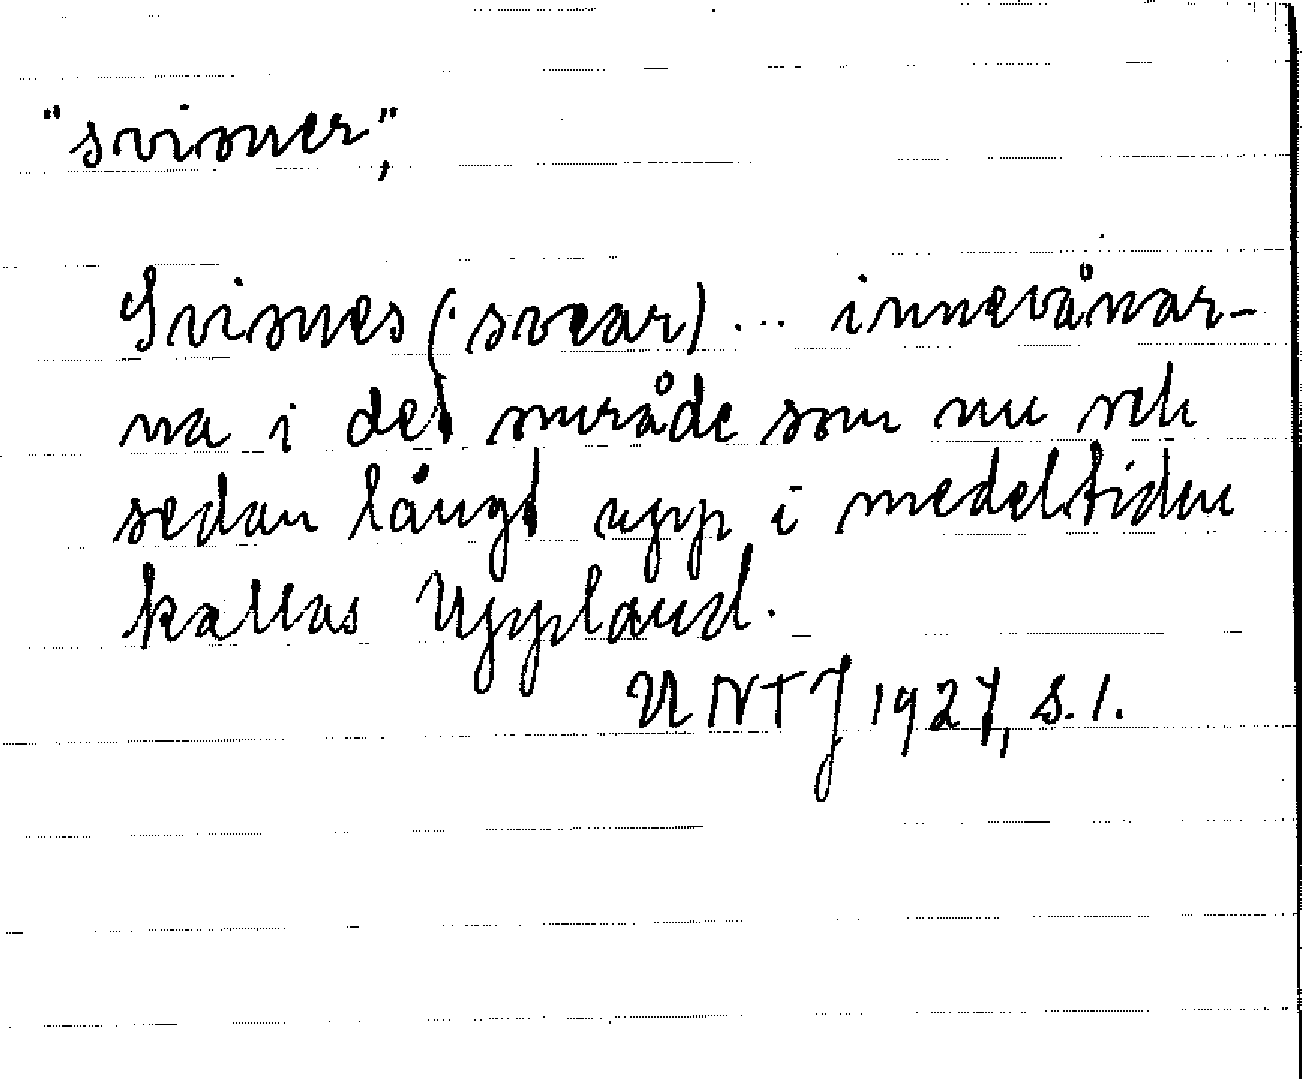 "svioner",
Sviones (svear) ... innevånar-
na i det område som nu och
sedan långt upp i medeltiden
kallas Uppland.
UNTJ 1927, s. 1.